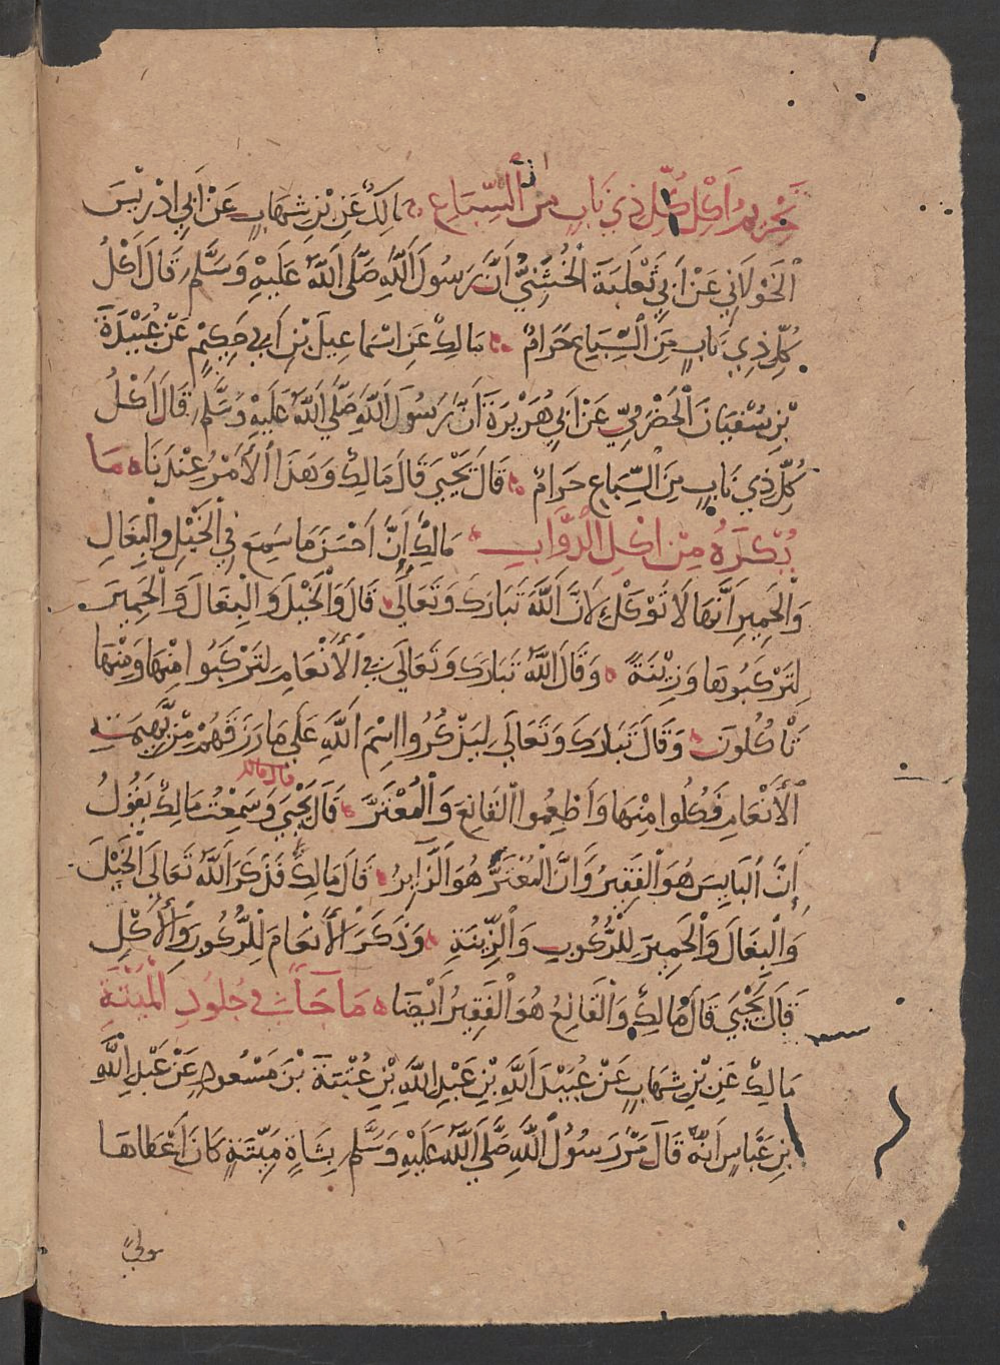 تَحْرِيمُ أَكْلِ كُلِّ ذِي نَابٍ مِنَ السِّبَاعِ مَالِكٌ عَنِ بْنِ شِهَابٍ عَنْ أَبِي إِدْرِيسَ
الْخَوْلَانِي عَنْ أَبِي ثَعْلَبَةَ الْخُشَنِيِّ أَنَّ رَسُولَ اللَّهِ صَلَّى اللَّهُ عَلَيْهِ وَسَلَّمَ قَالَ أَكْلُ
كُلِّ ذِي نَابٍ مِنَ السِّبَاعِ حَرَامٌ مَالِكٌ عَنِ اسْمَاعِيلَ بْنِ أَبِي حَكِيمٍ عَنْ عُبَيْدَةَ
بْنِ سُفْيَانَ الْحَضْرَمِيِّ عَنْ أَبِي هُرَيْرَةَ أَنَّ رَسُولَ اللَّهِ صَلَّى اللَّهُ عَلَيْهِ وَسَلَّمَ قَالَ أَكْلُ
كُلِّ ذِي نَابٍ مِنَ السِّبَاعِ حَرَامٌ قَالَ يَحْيَى قَالَ مَالِكٌ وَهَذَا الْأَمْرُ عِنْدَنَا مَا
يُكْرَهُ مِنْ اكْلِ الدَّوَابِ مَالِكٌ إِنَّ أَحْسَنَ مَا سَمِعَ فِي الْخَيْلِ وَالْبِغَالِ
وَالْحَمِيرِ أَنَّهَا لَا تُوْكَلُ لِأَنَّ اللَّهَ تَبَارَكَ وَتَعَالَى قَالَ وَالْخَيْلَ وَالْبِغَالَ وَالْحَمِيرَ
لِتَرْكَبُوهَا وَزِينَةً وَقَالَ اللَّهُ تَبَارَكَ وَتَعَالَى فِي الْأَنْعَامِ لِتَرْكَبُوا مِنْهَا وَمِنْهَا
تَأْكُلُونَ وَقَالَ تَبَارَكَ وَتَعَالَى لِيَذْكُرُوا اسْمَ اللَّهِ عَلَى مَا رَزَقَهُمْ مِّنْ بَهِيمَةِ
الْأَنْعَامِ فَكُلُوا مِنْهَا وَأَطْعِمُوا الْقَانِعَ وَالْمُعْتَرَّ قَالَ يَحْيَى وَسَمِعْتُ مَالِكٌ يَقُولُ
إِنَّ الْبَايِسَ هُوَ الْفَقِيرُ وَأَنَّ الْمُعْتَرَّ هُوَ الزَّايِرُ قَالَ مَالِكٌ فَذَكَرَ اللَّهُ تَعَالَى الْخَيْلَ
وَالْبِغَالَ وَالْحَمِيرَ لِلرُّكُوبِ وَالزِّينَةِ وَذَكَرَ الْأَنْعَامَ لِلرُّكُوبِ وَالْأَكْلِ
قَالَ يَحْيَى قَالَ مَالِكٌ وَالْقَانِعُ هُوَ الْفَقِيرُ أَيْضًا مَا جَآءَ فِي جُلُودِ الْمَيْتَةِ
مَالِكٌ عَنِ بْنِ شِهَابٍ عَنْ عُبَيْدِ اللَّهِ بْنِ عَبْدِ اللَّهِ بْنِ عُتْبَةَ بْنِ مَسْعُودٍ عَنْ عَبْدِ اللَّهِ
بْنِ عَبَّاسٍ أَنَّهُ قَالَ مَرَّ رَسُولُ اللَّهِ صَلَّى اللَّهُ عَلَيْهِ وَسَلَّمَ بِشَاةٍ مَيِّتَةٍ كَانَ أَعْطَاهَا